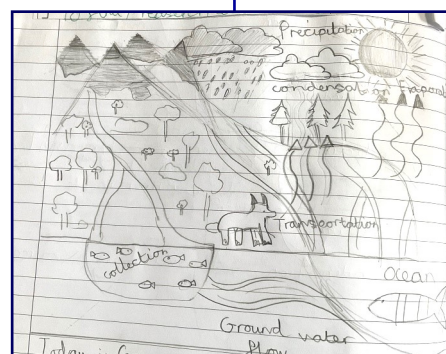 Precipitation
condensation Evaporat
Transportation
collection
Ocean
Ground water
flow
Today in